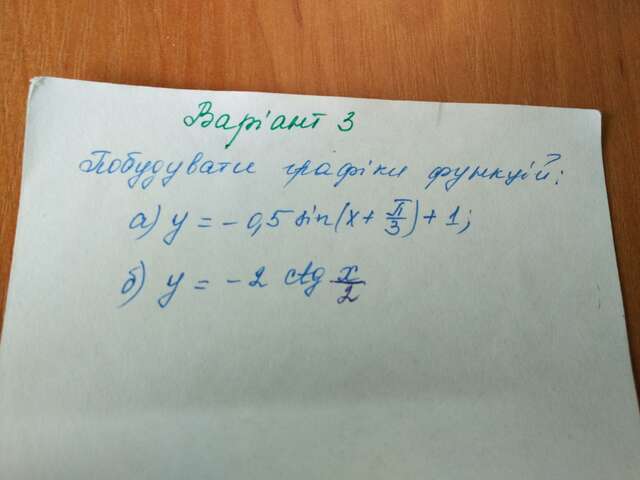 Варіант 3
Побудувати графіки функцій:
а) y = - 0,5 sin(x + π/3) + 1;
б) y = - 2 ctg x/2